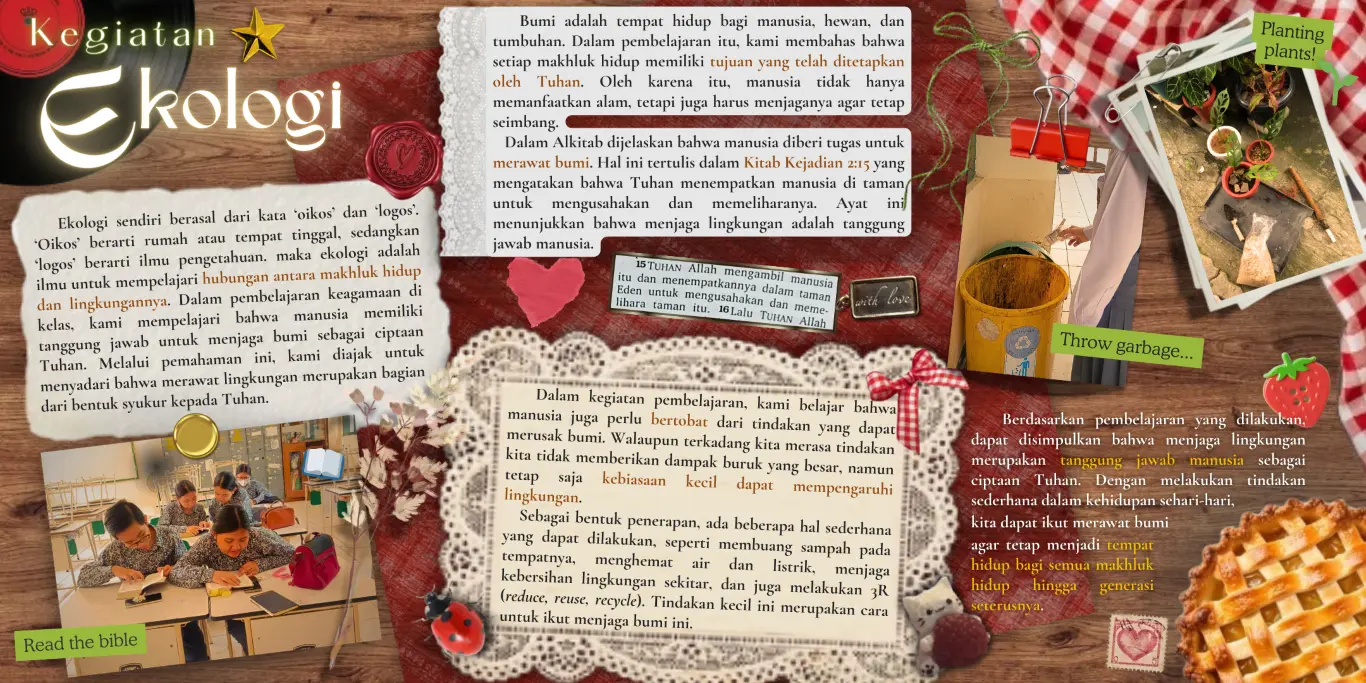 Kegiatan
Ekologi
Ekologi sendiri berasal dari kata ‘oikos’ dan ‘logos’.
‘Oikos’ berarti rumah atau tempat tinggal, sedangkan
‘logos’ berarti ilmu pengetahuan. maka ekologi adalah
ilmu untuk mempelajari hubungan antara makhluk hidup
dan lingkungannya. Dalam pembelajaran keagamaan di
kelas, kami mempelajari bahwa manusia memiliki
tanggung jawab untuk menjaga bumi sebagai ciptaan
Tuhan. Melalui pemahaman ini, kami diajak untuk
menyadari bahwa merawat lingkungan merupakan bagian
dari bentuk syukur kepada Tuhan.
Read the bible
Bumi adalah tempat hidup bagi manusia, hewan, dan
tumbuhan. Dalam pembelajaran itu, kami membahas bahwa
setiap makhluk hidup memiliki tujuan yang telah ditetapkan
oleh Tuhan. Oleh karena itu, manusia tidak hanya
memanfaatkan alam, tetapi juga harus menjaganya agar tetap
seimbang.
Dalam Alkitab dijelaskan bahwa manusia diberi tugas untuk
merawat bumi. Hal ini tertulis dalam Kitab Kejadian 2:15 yang
mengatakan bahwa Tuhan menempatkan manusia di taman
untuk mengusahakan dan memeliharanya. Ayat ini
menunjukkan bahwa menjaga lingkungan adalah tanggung
jawab manusia.
15 TUHAN Allah mengambil manusia
itu dan menempatkannya dalam taman
Eden untuk mengusahakan dan meme-
lihara taman itu. 16 Lalu TUHAN Allah
with love
Dalam kegiatan pembelajaran, kami belajar bahwa
manusia juga perlu bertobat dari tindakan yang dapat
merusak bumi. Walaupun terkadang kita merasa tindakan
kita tidak memberikan dampak buruk yang besar, namun
tetap saja kebiasaan kecil dapat mempengaruhi
lingkungan.
Sebagai bentuk penerapan, ada beberapa hal sederhana
yang dapat dilakukan, seperti membuang sampah pada
tempatnya, menghemat air dan listrik, menjaga
kebersihan lingkungan sekitar, dan juga melakukan 3R
(reduce, reuse, recycle). Tindakan kecil ini merupakan cara
untuk ikut menjaga bumi ini.
Planting
plants!
Throw garbage...
Berdasarkan pembelajaran yang dilakukan,
dapat disimpulkan bahwa menjaga lingkungan
merupakan tanggung jawab manusia sebagai
ciptaan Tuhan. Dengan melakukan tindakan
sederhana dalam kehidupan sehari-hari,
kita dapat ikut merawat bumi
agar tetap menjadi tempat
hidup bagi semua makhluk
hidup hingga generasi
seterusnya.